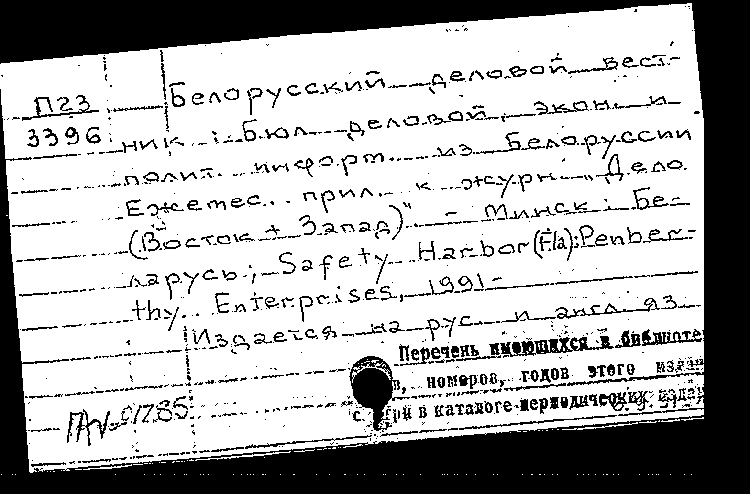 П23
3396
Белорусский деловой вест-
ник : Бюл. деловой, экон. и
полит. информ. из Белоруссии
Ежемес. прил. к журн. „Дело
(Восток + Запад)". - Минск : Бе-
ларусь ; Safety Harbor (Fla): Penber-
thy Enterprises, 1991-
Издается на рус. и англ. яз.
Перечень имеющихся в библиоте
в, номеров, годов этого издан
с три в каталоге периодических издан